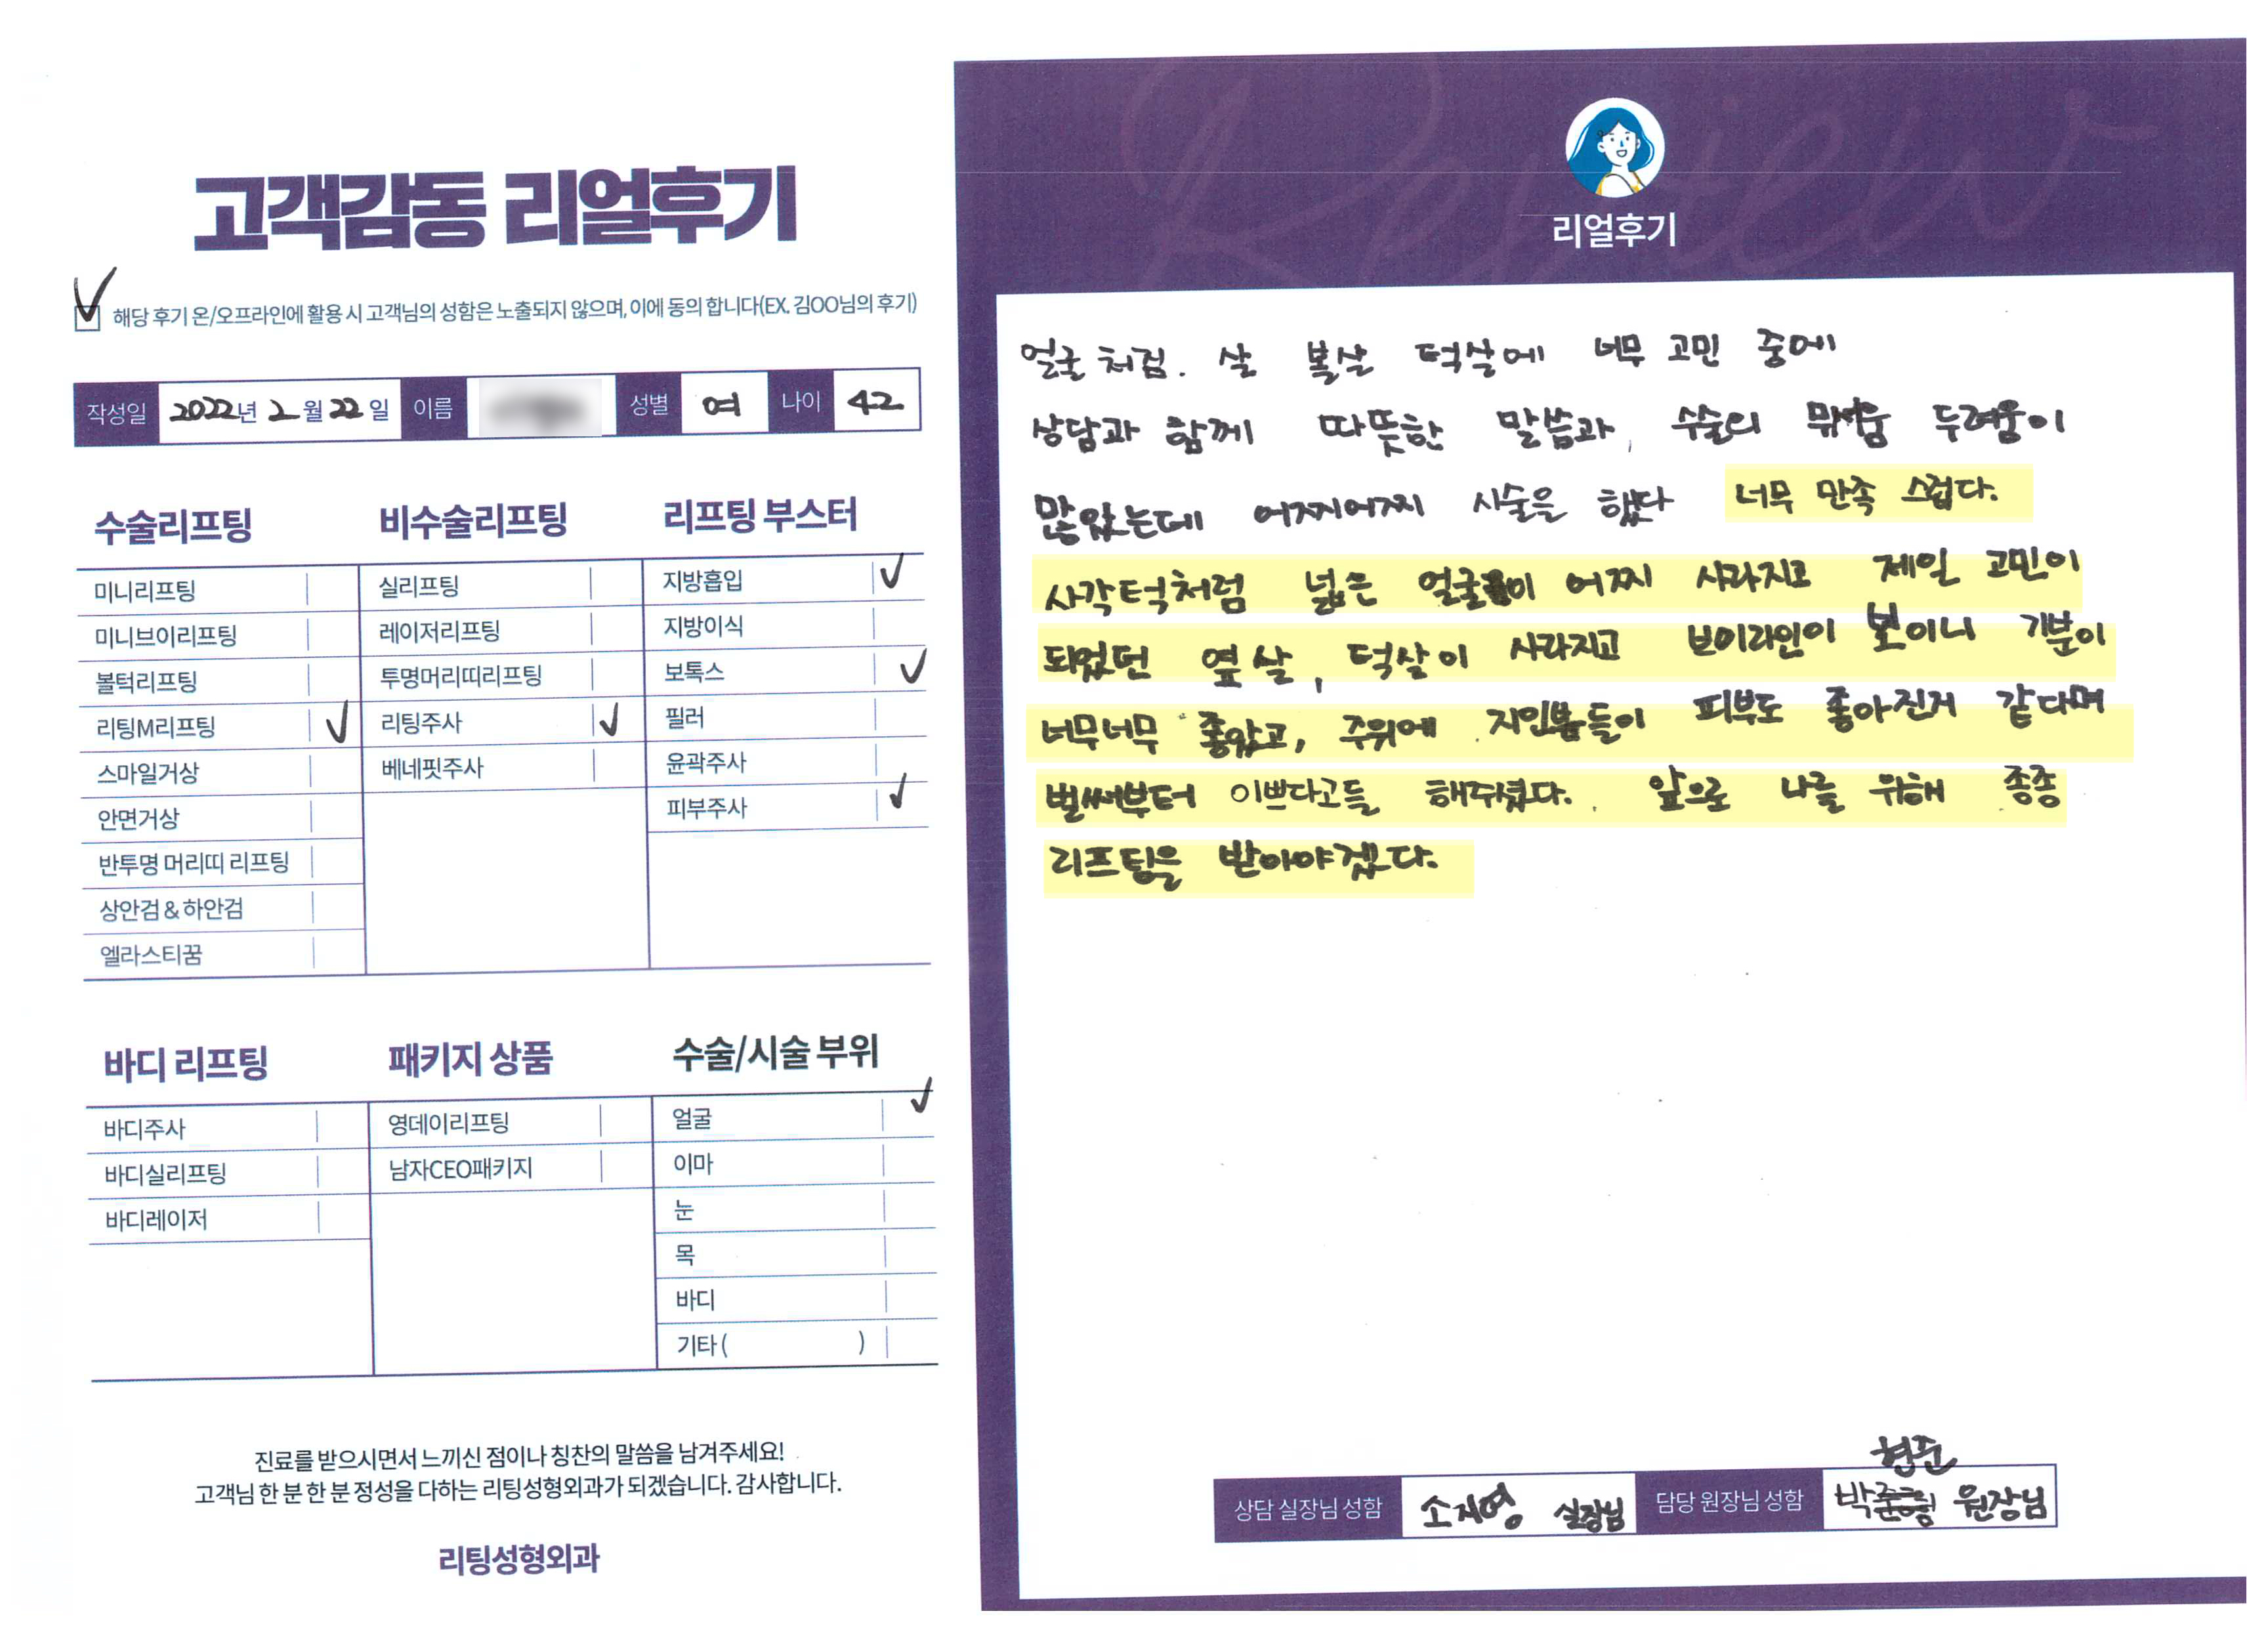 고객감동 리얼후기
해당 후기 온/오프라인에 활용 시 고객님의 성함은 노출되지 않으며, 이에 동의 합니다(EX. 김OO님의 후기)
작성일 2022년 2월 22일 이름 성별 여 나이 42
수술리프팅
미니리프팅
미니브이리프팅
볼턱리프팅
리팅M리프팅
스마일거상
안면거상
반투명 머리띠 리프팅
상안검 & 하안검
엘라스티꿈
비수술리프팅
실리프팅
레이저리프팅
투명머리띠리프팅
리팅주사
베네핏주사
리프팅 부스터
지방흡입
지방이식
보톡스
필러
윤곽주사
피부주사
바디 리프팅
바디주사
바디실리프팅
바디레이저
패키지 상품
영데이리프팅
남자CEO패키지
수술/시술 부위
얼굴
이마
눈
목
바디
기타 ( )
진료를 받으시면서 느끼신 점이나 칭찬의 말씀을 남겨주세요!
고객님 한 분 한 분 정성을 다하는 리팅성형외과가 되겠습니다. 감사합니다.
리팅성형외과
Review
리얼후기
얼굴 처짐. 살 볼살 턱살에 너무 고민 중에
상담과 함께 따뜻한 말씀과, 수술의 무서움 두려움이
많았는데 어찌어찌 시술을 했다 너무 만족 스럽다.
사각턱처럼 넓은 얼굴이 어찌 사라지고 제일 고민이
되었던 옆살, 턱살이 사라지고 브이라인이 보이니 기분이
너무너무 좋았고, 주위에 지인분들이 피부도 좋아진거 같다며
벌써부터 이쁘다고들 해주셨다. 앞으로 나를 위해 종종
리프팅을 받아야겠다.
상담 실장님 성함 소지영 실장님 담당 원장님 성함 박형준 원장님